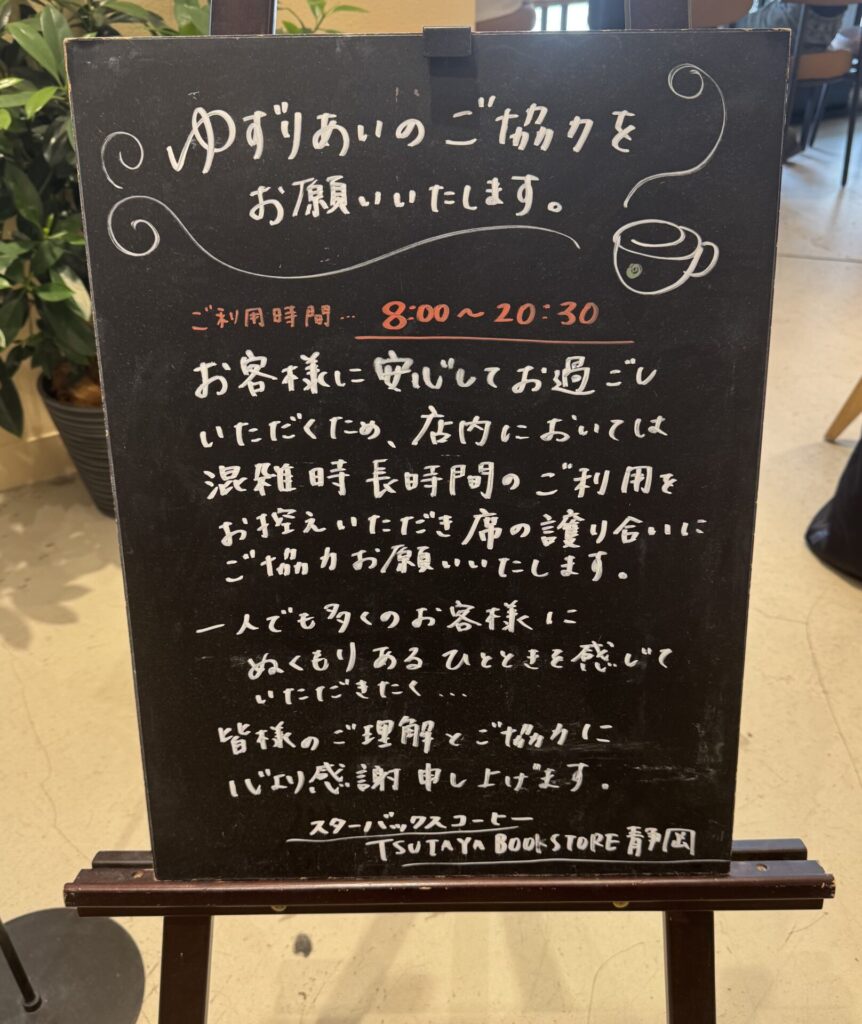 ゆずりあいのご協力を
お願いいたします。
ご利用時間… 8:00〜20:30
お客様に安心してお過ごし
いただくため、店内においては
混雑時長時間のご利用を
お控えいただき席の譲り合いに
ご協力お願いいたします。
一人でも多くのお客様に
ぬくもりあるひとときを感じて
いただきたく…
皆様のご理解とご協力に
心より感謝申し上げます。
スターバックスコーヒー
TSUTAYA BOOKSTORE 静岡